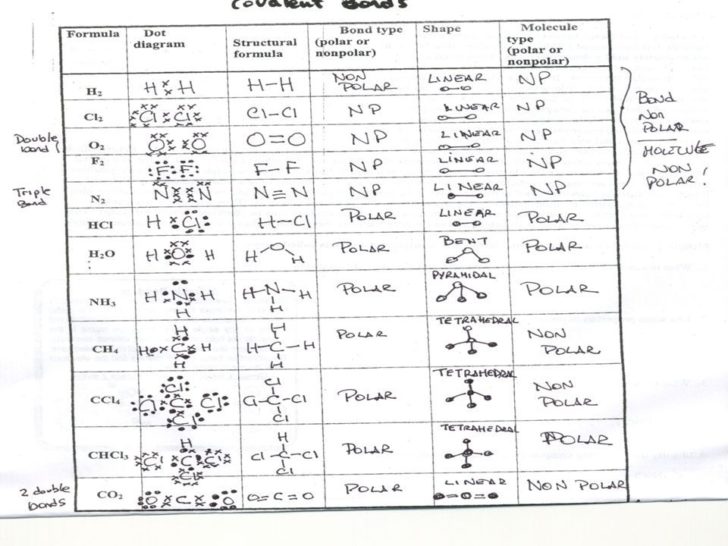 Covalent Bonds
Formula Dot diagram Structural formula Bond type (polar or nonpolar) Shape Molecule type (polar or nonpolar)
H₂ H H H-H NON POLAR LINEAR NP
Cl₂ Cl Cl Cl-Cl NP LINEAR NP
Double bond O₂ O O O=O NP LINEAR NP
F₂ F F F-F NP LINEAR NP
Triple Bond N₂ N N N≡N NP LINEAR NP
Bond Non POLAR
MOLECULE NON POLAR!
HCl H Cl H-Cl POLAR LINEAR POLAR
H₂O H O H H O H POLAR BENT POLAR
NH₃ H N H H H-N-H H POLAR PYRAMIDAL POLAR
CH₄ H H C H H H H-C-H H POLAR TETRAHEDRAL NON POLAR
CCl₄ Cl Cl C Cl Cl Cl Cl-C-Cl Cl POLAR TETRAHEDRAL NON POLAR
CHCl₃ H Cl C Cl Cl H Cl-C-Cl Cl POLAR TETRAHEDRAL POLAR
2 double bonds CO₂ O C O O=C=O POLAR LINEAR NON POLAR